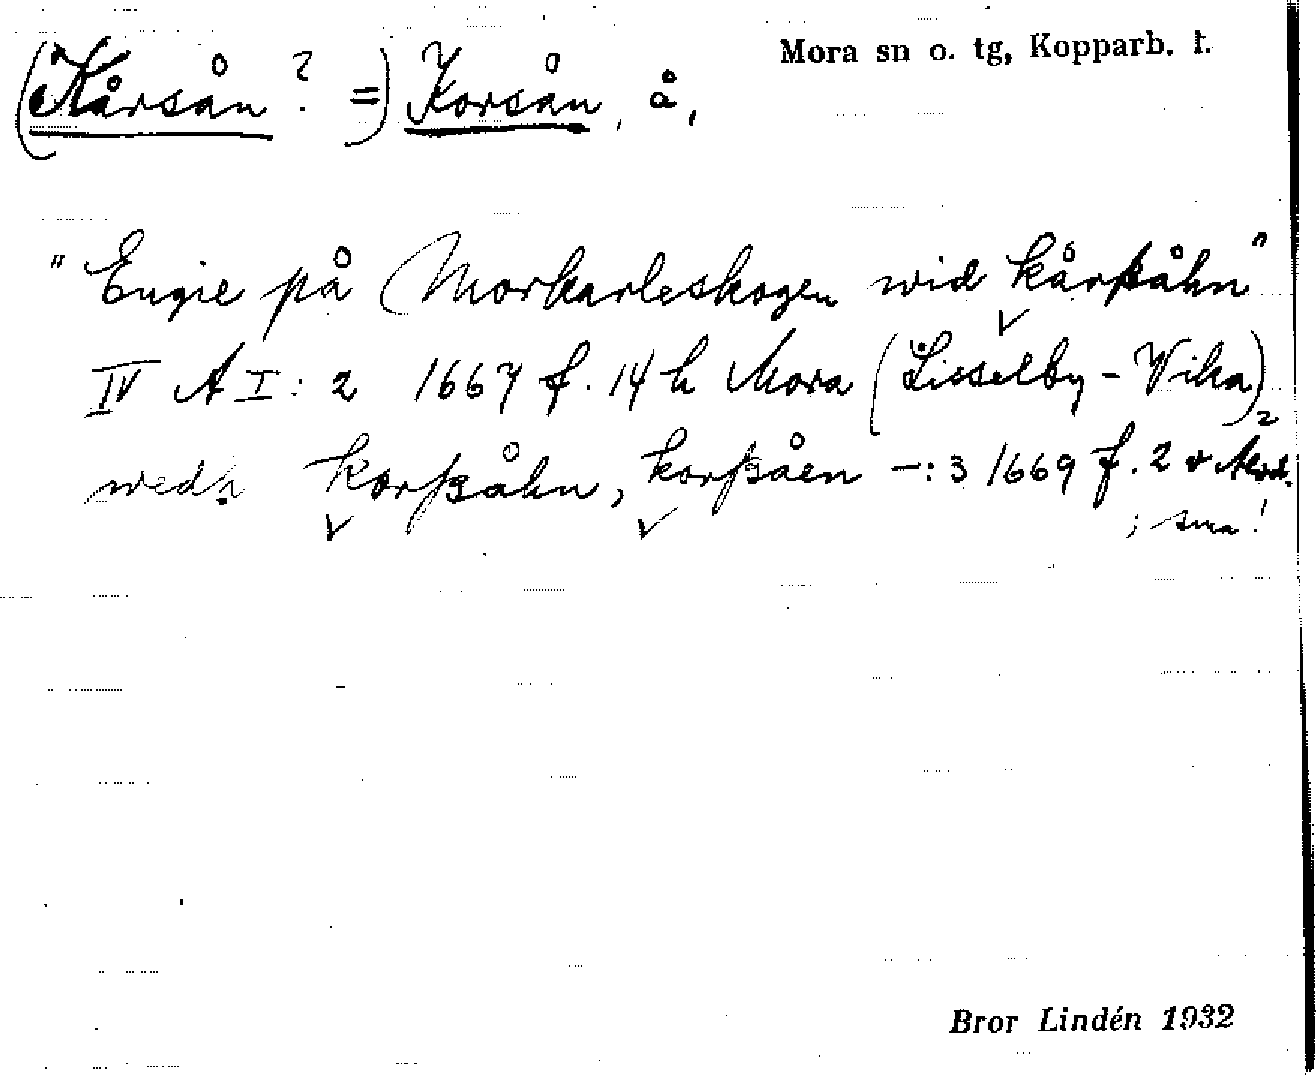 Mora sn o. tg, Kopparb. l.
(Kårsån? =) Korsån, å,
"Engie på Morkarleskogen wid kårßåhn"
IV A I: 2 1667 f. 14 h Mora (Lisselby - Vika)
wedh korßåhn, korßåen -: 3 1669 f. 2 v
Bror Lindén 1932